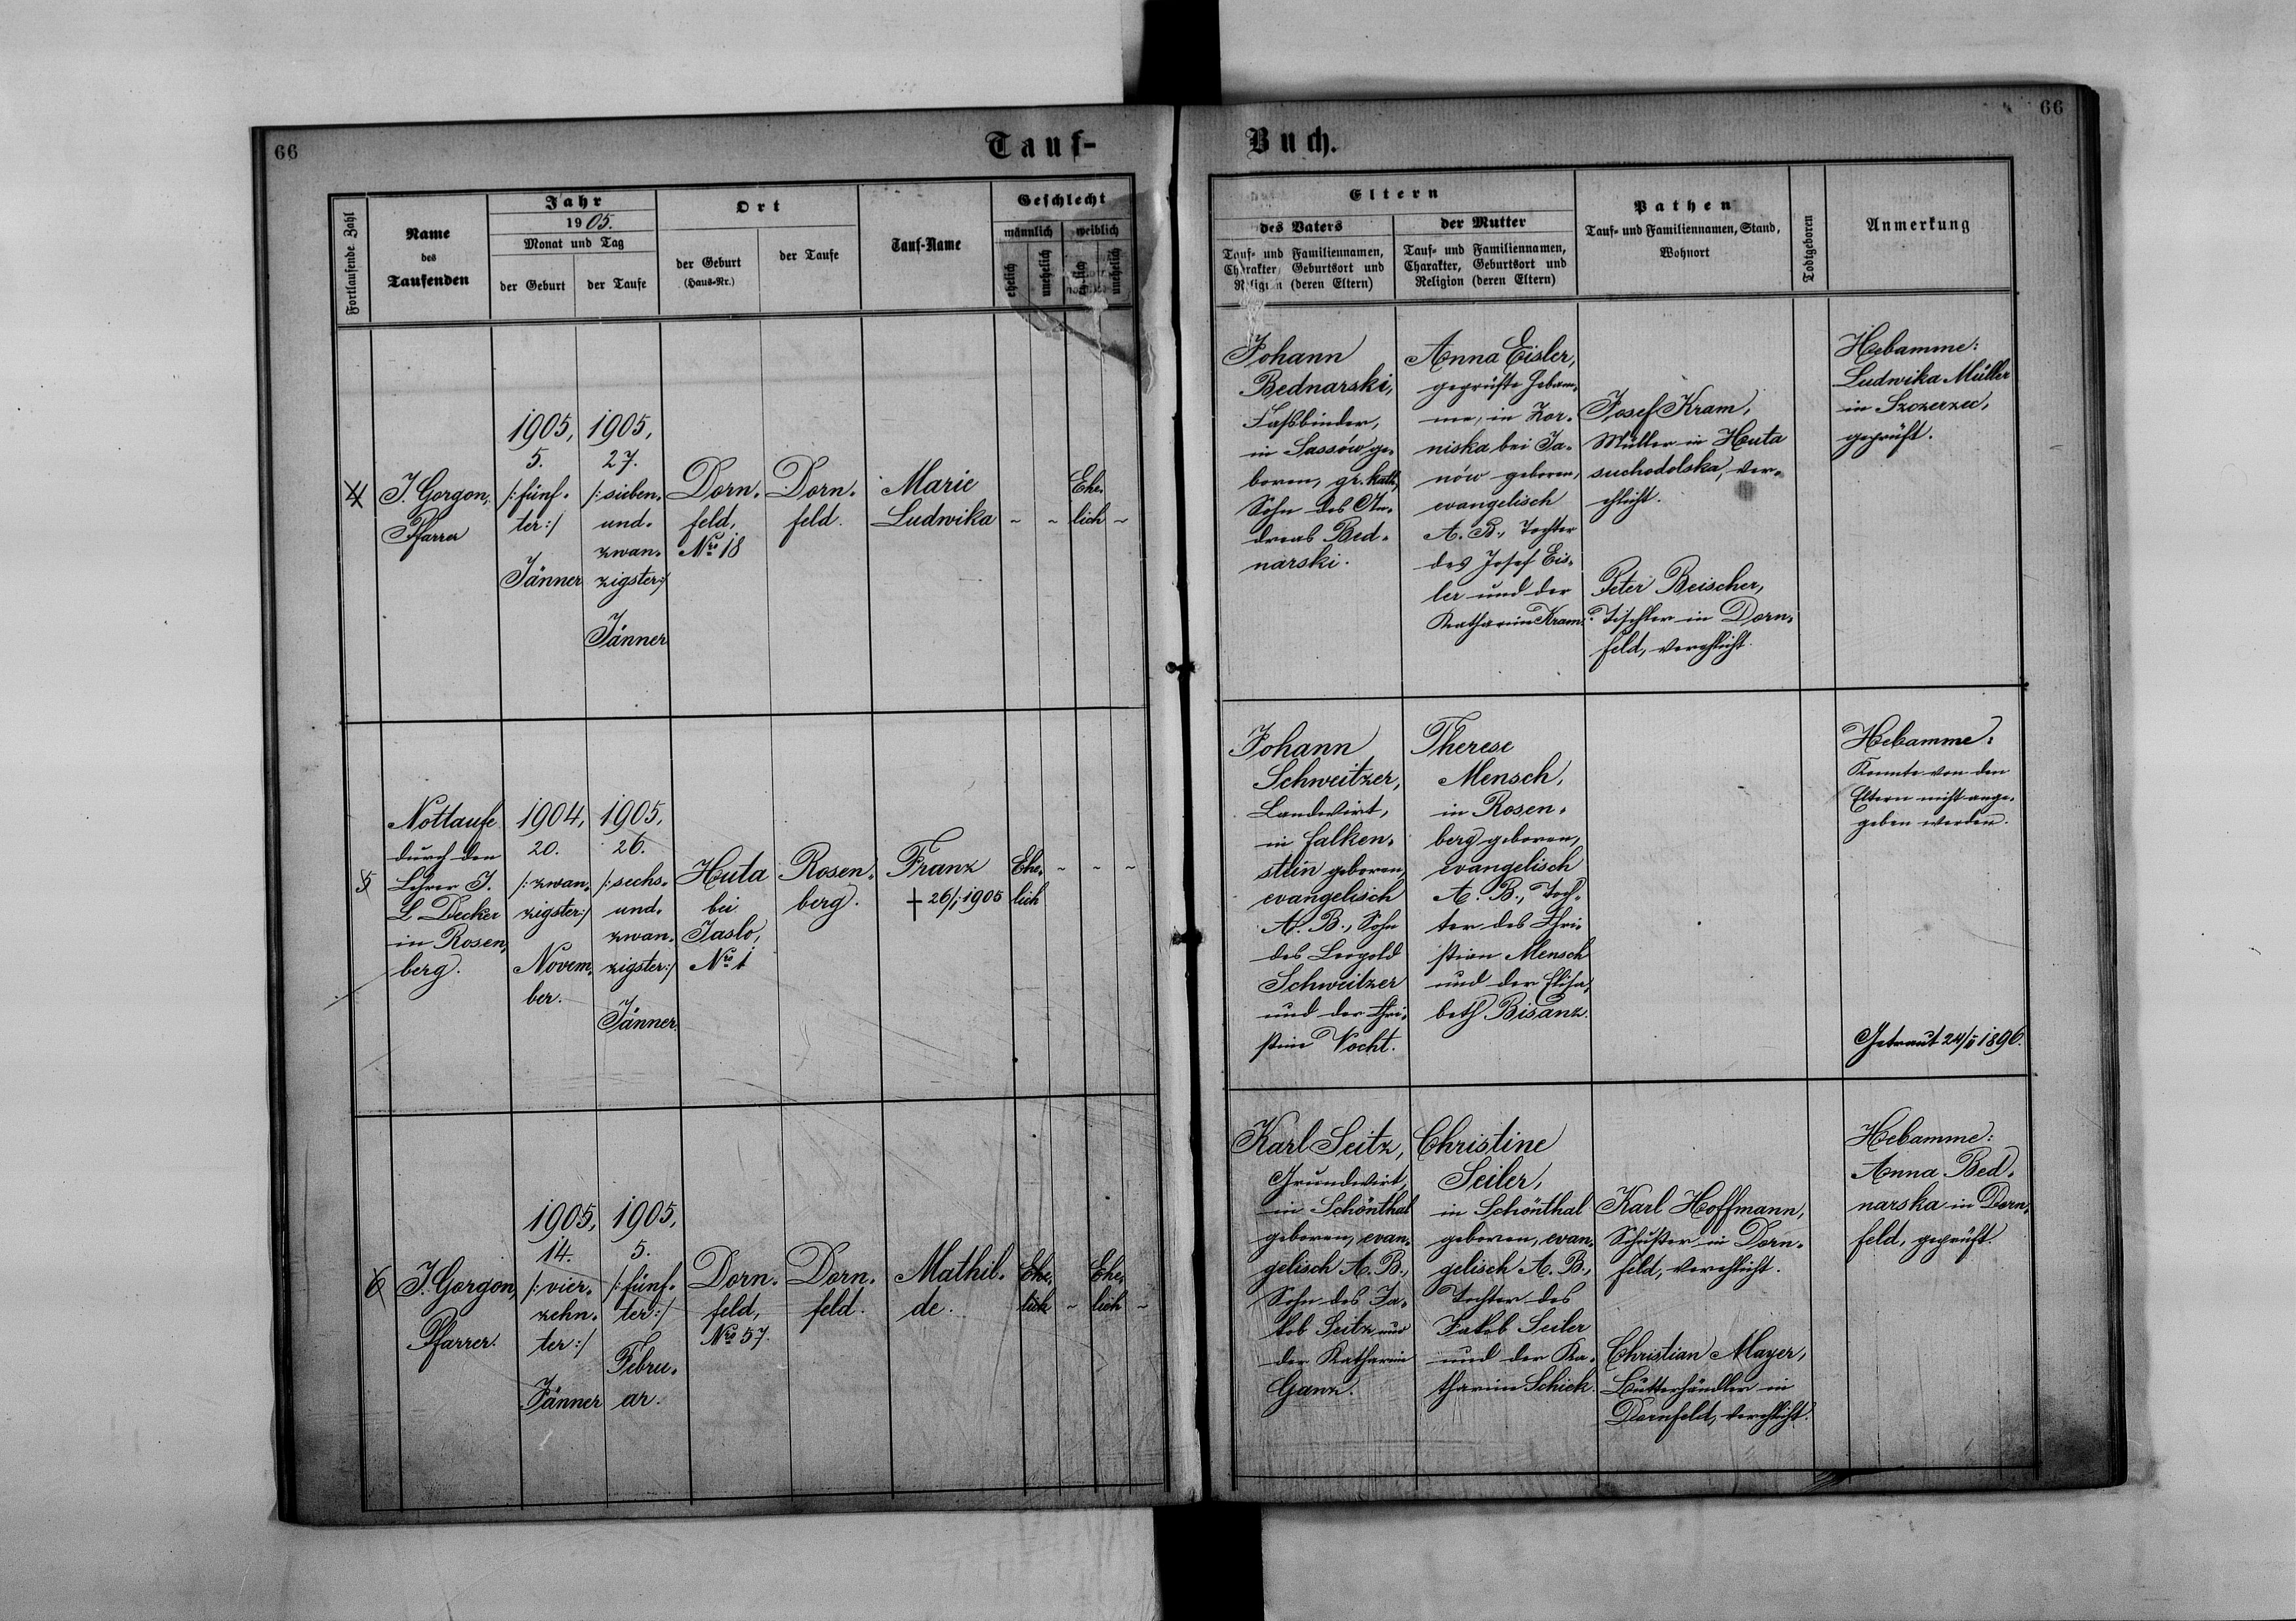 66
Tauf-
Buch.
66
Fortlaufende Zahl
Name
des
Taufenden
Jahr
1905.
Monat und Tag
der Geburt
der Taufe
Ort
der Geburt
(Haus-Nr.)
der Taufe
Tauf-Name
Geschlecht
männlich
weiblich
ehelich
unehelich
ehelich
unehelich
Eltern
des Vaters
Tauf- und Familiennamen,
Charakter, Geburtsort und
Religion (deren Eltern)
der Mutter
Tauf- und Familiennamen,
Charakter, Geburtsort und
Religion (deren Eltern)
Pathen
Tauf- und Familiennamen, Stand,
Wohnort
Todtgeboren
Anmerkung
4
J. Gorgon,
Pfarrer
1905,
5.
/:fünf-
ter:/
Jänner
1905,
27.
/:sieben-
und-
zwan-
zigster:/
Jänner
Dorn-
feld,
Nro 18
Dorn-
feld.
Marie
Ludwika
~
~
Ehe-
lich
~
Johann
Bednarski,
Faßbinder,
in Sassów ge-
boren, gr. kath,
Sohn des An-
dreas Bed-
narski.
Anna Eisler,
geprüfte Hebam-
me, in Zor-
niska bei Ja-
nów geboren,
evangelisch
A. B., Tochter
des Josef Eis-
ler und der
Katharina Kram.
Josef Kram,
Müller in Huta
suchodolska, ver-
ehlicht.
Peter Beischer,
Tischler in Dorn-
feld, verehlicht.
Hebamme:
Ludwika Müller
in Szczerzec,
geprüft.
5
Nottaufe
durch den
Lehrer J.
L Decker
in Rosen-
berg.
1904,
20.
/:zwan-
zigster:/
Novem-
ber.
1905,
26.
/:sechs-
und-
zwan-
zigster:/
Jänner.
Huta
bei
Jaslo,
Nro 1
Rosen-
berg.
Franz
† 26/I 1905
Ehe-
lich
~
~
~
Johann
Schweitzer,
Landwirt,
in Falken-
stein geboren,
evangelisch
A. B., Sohn
des Leopold
Schweitzer
und der Chri-
stine Vocht.
Therese
Mensch,
in Rosen-
berg geboren,
evangelisch
A. B., Toch-
ter des Chri-
stian Mensch
und der Elisa-
beth Bisanz.
Hebamme:
Konnte von den
Eltern nicht ange-
geben werden.
Getraut 24/II 1896.
6
J. Gorgon,
Pfarrer.
1905,
14.
/:vier-
zehn-
ter:/
Jänner
1905,
5.
/:fünf-
ter:/
Febru-
ar.
Dorn-
feld,
Nro 57.
Dorn-
feld.
Mathil-
de.
Ehe-
lich
~
Ehe-
lich
~
Karl Seitz,
Grundwirt,
in Schönthal
geboren, evan-
gelisch A. B.,
Sohn des Ja-
kob Seitz und
der Katharine
Ganz.
Christine
Seiler,
in Schönthal
geboren, evan-
gelisch A. B.,
Tochter des
Jakob Seiler
und der Ka-
tharine Schick.
Karl Hoffmann,
Schuster in Dorn-
feld, verehlicht.
Christian Mayer,
Butterhändler in
Dornfeld, verehlicht.
Hebamme:
Anna Bed-
narska in Dorn-
feld, geprüft.